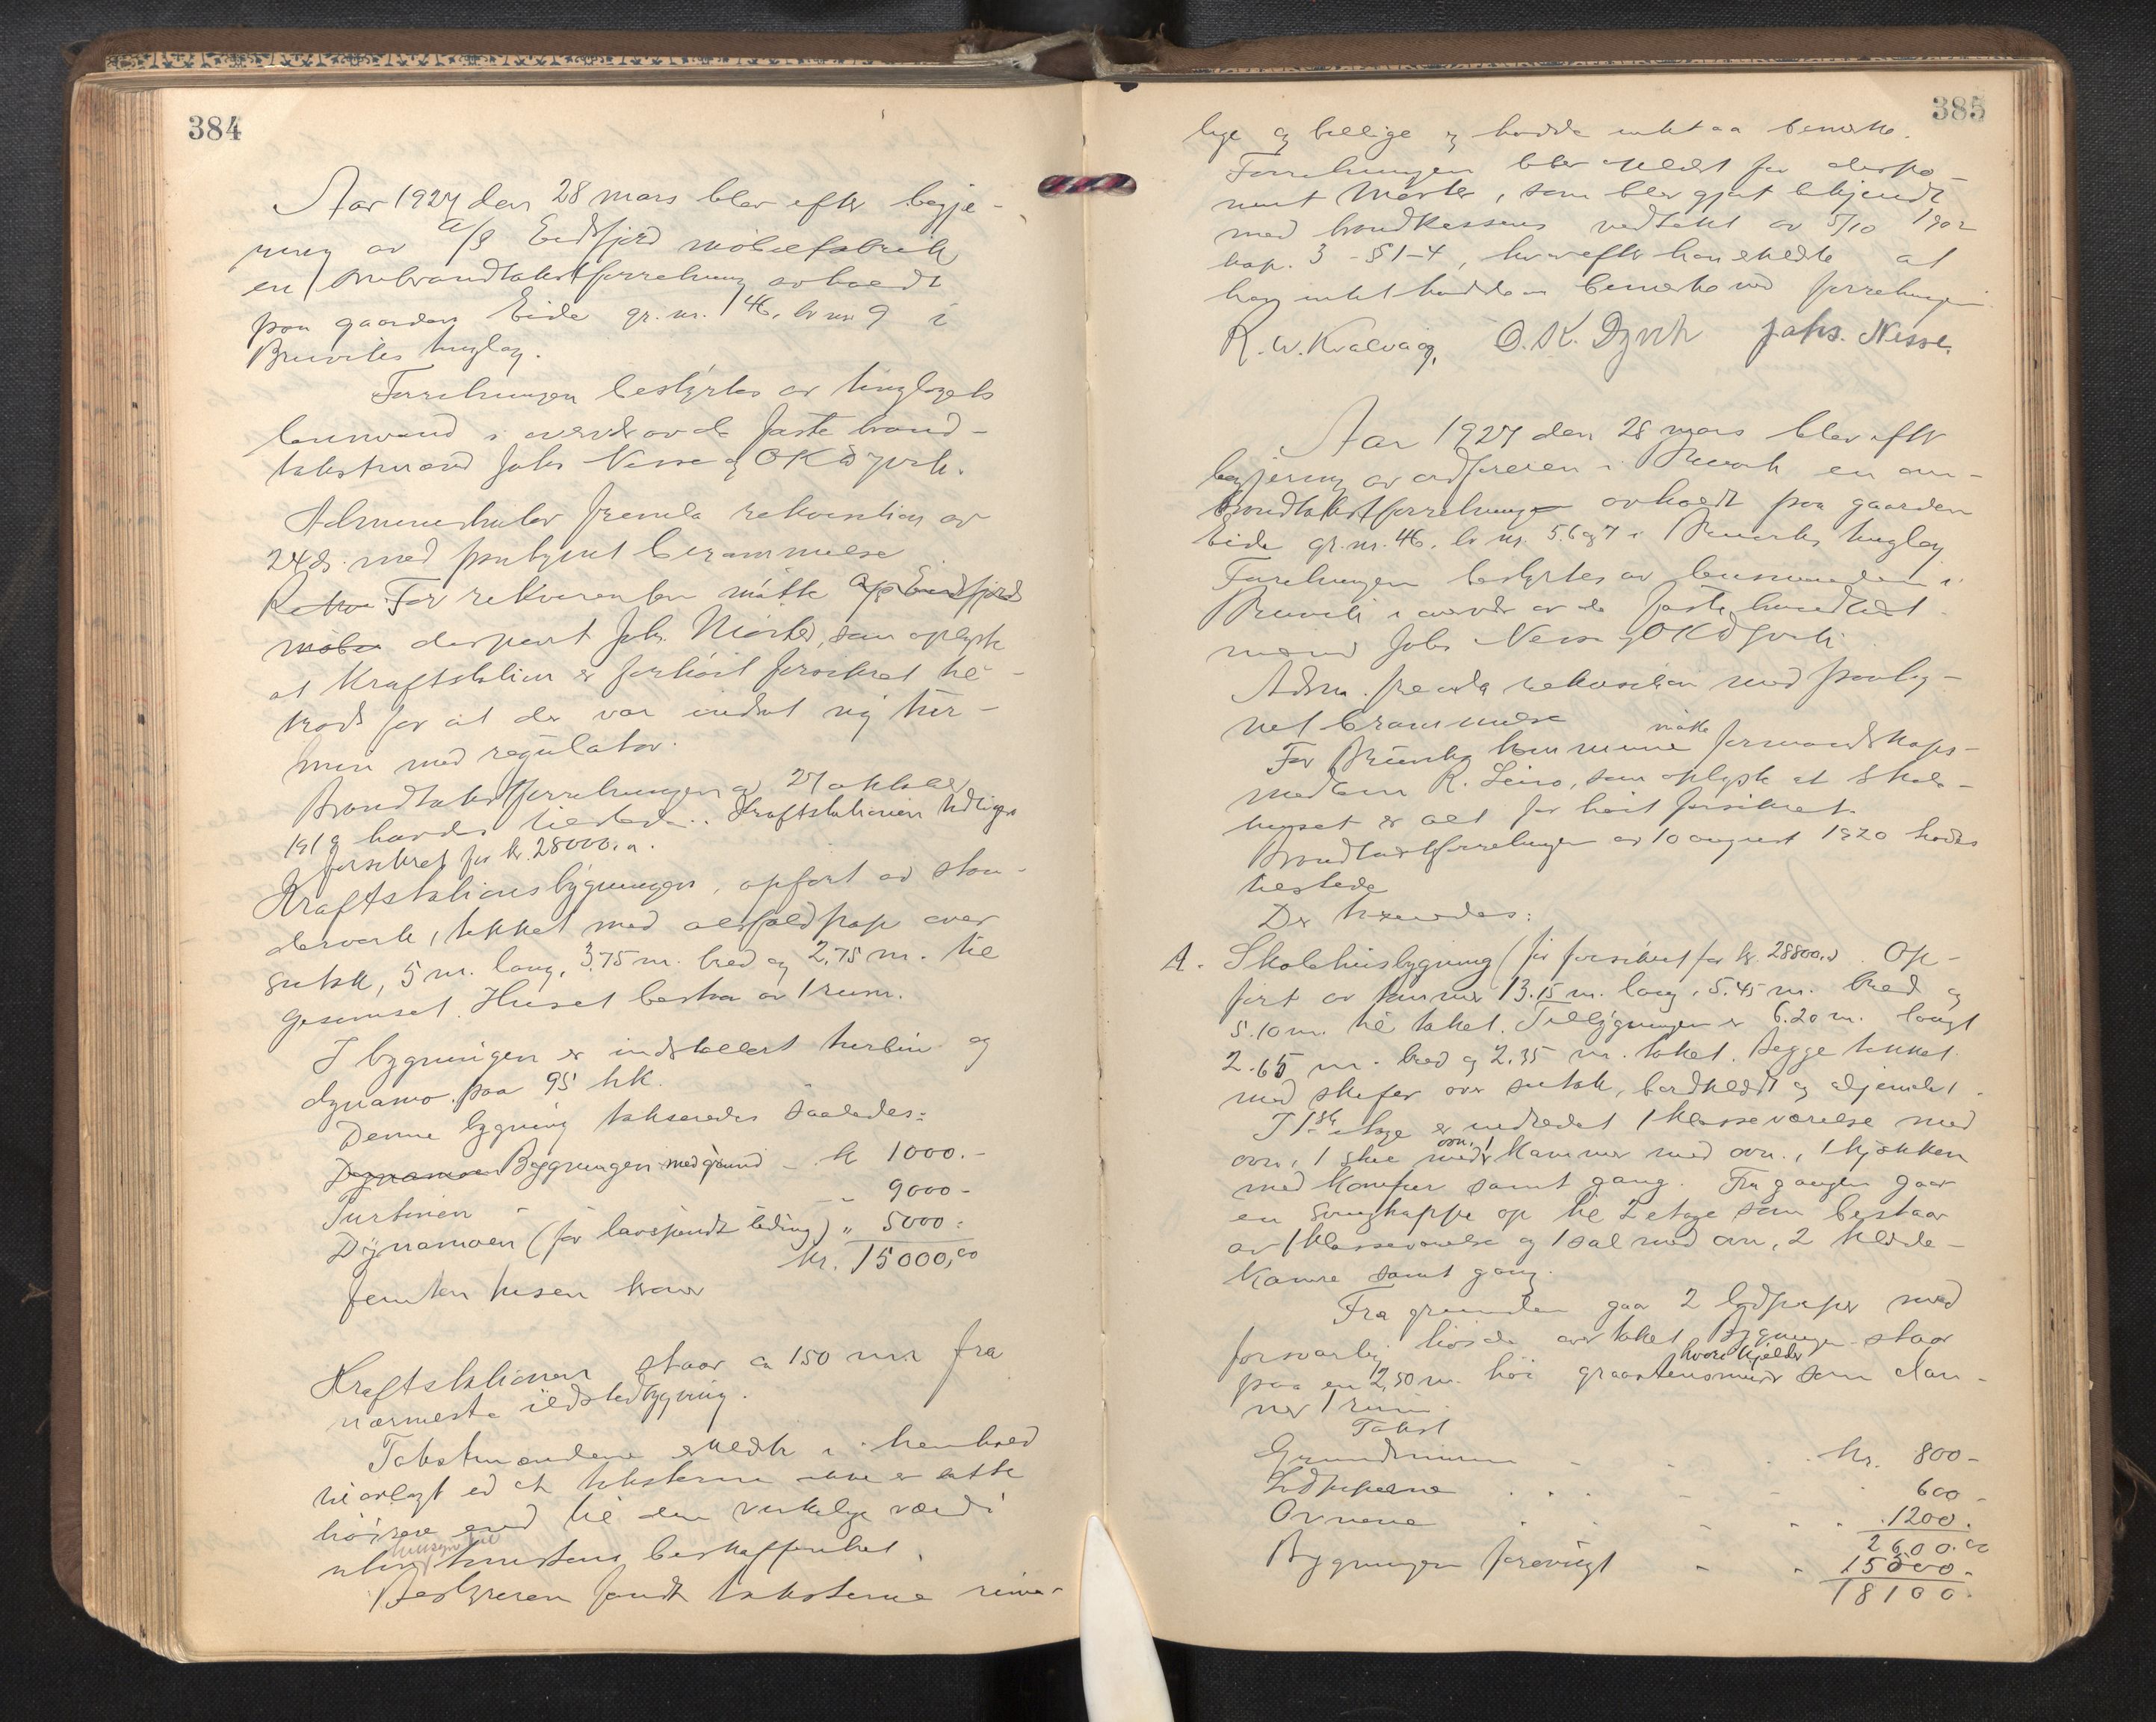 384
Aar 1927 den 28 mars blev efter begjæ-
ring av A/S Eidsfjord møbelfabrik
en ombrandtakstforretning avholdt
paa gaarden Eide gr. nr. 146, br nr 9 i
Bruviks tinglag.
Forretningen bestyrtes av tinglagets
lensmand i overvær av de faste brand-
takstmænd Johs Nesse og O K Dyvik.
Administrator fremla rekvisition av
24 ds. med paategnet berammelse
For rekvirenten møtte A/S Eidsfjord
disponent Johs. Mørter, som oplyste
at Kraftstation er for høit forsikret til-
trods for at der var indsat ny tur-
bin med regulator.
Brandtakstforretningen av 27 oktober
1919 havdes tilstede. Kraftstationen tidligere
forsikret for kr. 28000.00.
Kraftstationsbygningen, opført av stan-
derverk, tækket med asfaldpap over
sutak, 5 m. lang, 3.75 m. bred og 2,75 m. til
gesimset. Huset bestaar av 1 rum.
I bygningen er indstallert turbin og
dynamo paa 95 hk.
Denne bygning takseredes saaledes:
Dynamoen Bygningen med grund - kr 1000.-
Turbinen - - 9000-
Dynamoen (for lavspændt leding) " 5000:
kr. 15000,00
femten tusen kroner
Kraftstationen staar ca 150 mtr fra
nærmeste ildstedbygning.
Takstmændene erklærte i henhold
til avlagt ed at taksterne ikke er satte
høiere end til den virkelige værdi
uten hensyn til tomtens beskaffenhet.
Bestyreren fandt taksterne rime-
385
lige og billige og hadde intet aa bemerke.
Forretningen blev oplæst for dispo-
nent Mørter, som blev gjort bekjendt
med brandkassens vedtækt av 5/10 1902
kap. 3 - § 1-4, hvorefter han erklærte at
han intet hadde aa bemerke ved forretningen
R. W. Kvalvaag, O. K. Dyvik Johs. Nesse.
Aar 1927 den 28 mars blev efter
begjæring av ordføreren i Bruvik en om-
brandtakstforretning avholdt paa gaarden
Eide gr. nr. 146, br nr. 5.6 og 7 i Bruviks tinglag
Forretningen bestyrtes av lensmanden i
Bruvik i overvær av de faste brandtakst
mænd Johs Nesse og O K Dyvik.
Adm. fremla rekvisition med paateg-
net berammelse
For Bruvik kommune møtte formandskaps-
medlem R. Leiro, som oplyste at skole-
huset er alt for høit forsikret.
Brandtakstforretningen av 10 august 1920 havdes
tilstede
Der takseredes:
A. Skolehusbygning (før forsikret for kr. 28800.00. Op-
ført av tømmer 13.15 m. lang, 5.45 m. bred og
5.10 m. til taket. Tilbygningen er 6.20 m. langt
2.65 m. bred og 2.35 m. taket. Begge tækket
med skifer over sutak, bordklædt og oljemalet.
I 1ste etage er indredet 1 klasseværelse med
ovn, 1 stue med ovn, 1 kammer med ovn, 1 kjøkken
med komfur samt gang. Fra gangen gaar
en svingtrappe op til 2 etage som bestaar
av 1 klasseværelse og 1 sal med ovn, 2 klæde-
kamre samt gang.
Fra grunden gaar 2 lødpiper med
forsvarlig høide over taket. Bygningen staar
paa en 2,50 m. høi graastensmur hvori kjelder som dan-
ner 1 rum.
Takst
Grundmuren - - kr. 800-
Lødpiperne - - 600-
Ovnene - - 1200.
2600.00
Bygningen forøvrigt - - 15500.
18100.